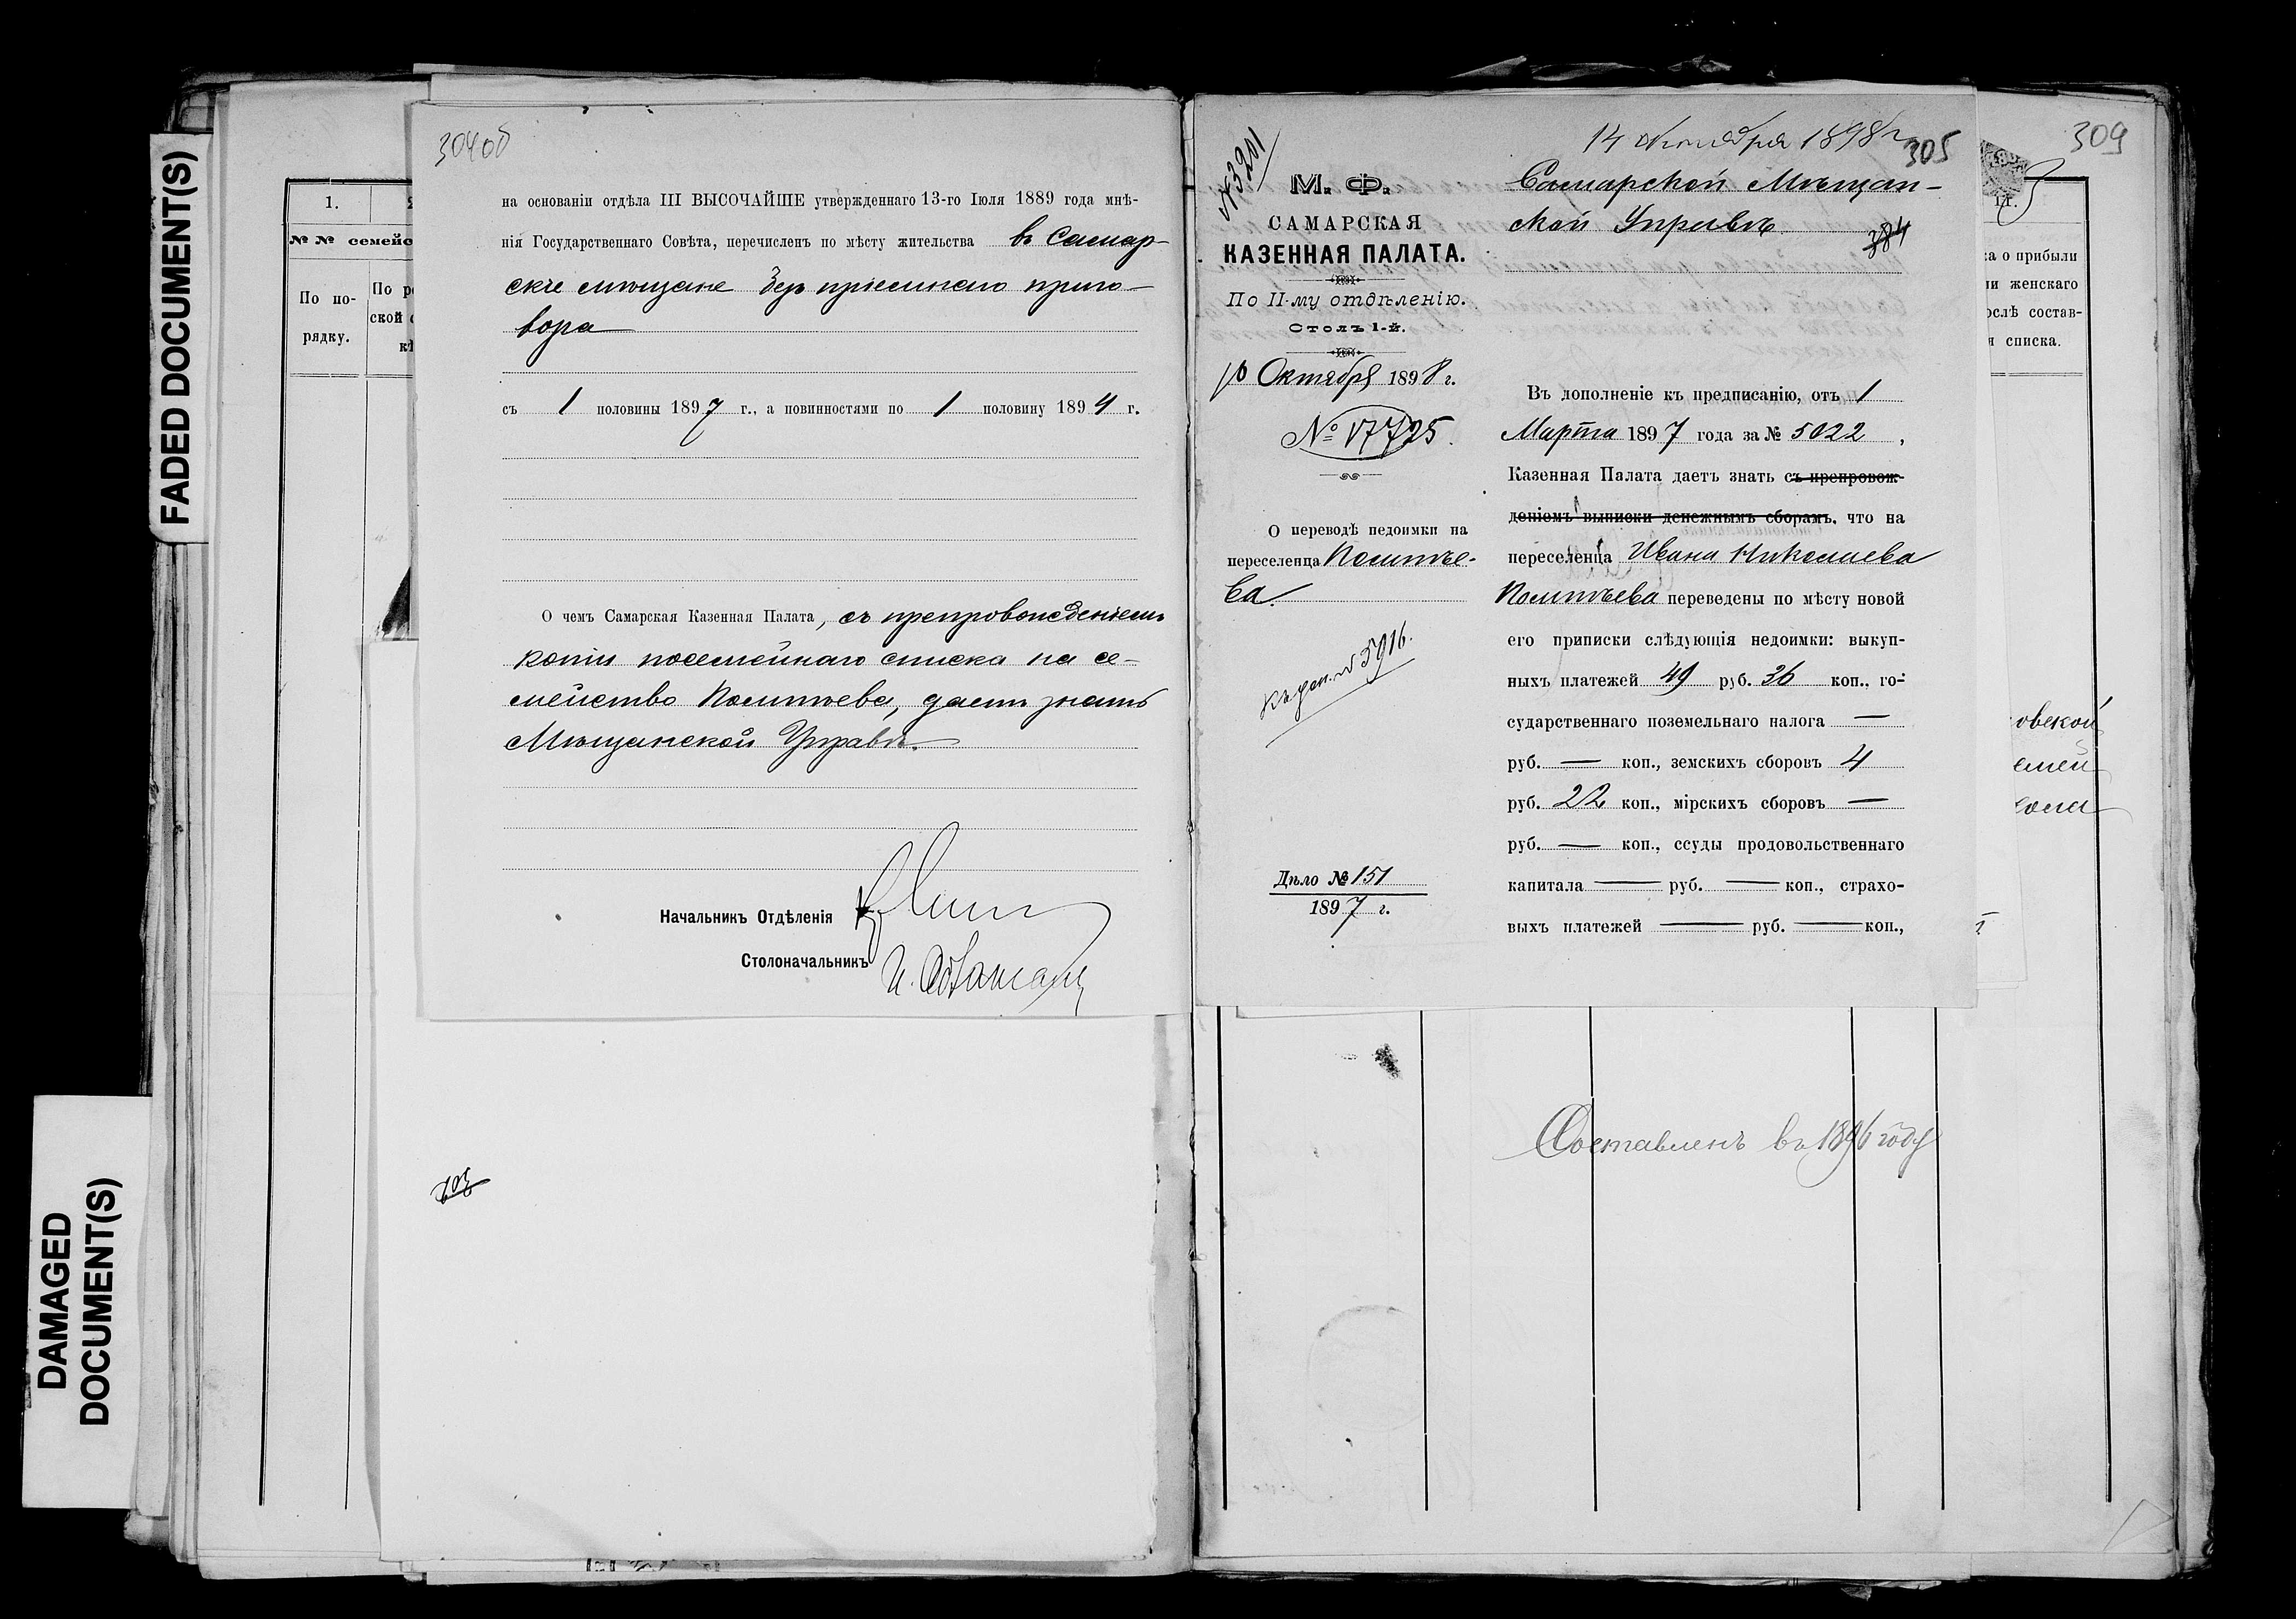 FADED DOCUMENT(S)
DAMAGED
DOCUMENT(S)
1.
№ № семейс
По по-
рядку.
По р
ской
304об
на основаніи отдѣла III ВЫСОЧАЙШЕ утвержденнаго 13-го Іюля 1889 года мнѣ-
нія Государственнаго Совѣта, перечисленъ по мѣсту жительства въ Самар-
скіе мѣщане безъ пріемнаго приго-
вора
съ 1 половины 1897 г., а повинностями по 1 половину 1894 г.
О чемъ Самарская Казенная Палата, съ препровожденіемъ
копіи посемейнаго списка на се-
мейство Полтѣева, даетъ знать
Мѣщанской Управѣ.
Начальникъ Отдѣленія
Столоначальникъ
№ 3201
М. Ф.
САМАРСКАЯ
КАЗЕННАЯ ПАЛАТА.
По II-му отдѣленію.
Столъ 1-й.
10 Октября 1898 г.
№ 17725.
О переводѣ недоимки на
переселенца Полтѣе-
ва.
№ 5916.
Дѣло № 151
1897 г.
14 октября 1898 г
305
Самарской Мѣщан-
ской Управѣ
384
Въ дополненіе къ предписанію, отъ 1
Марта 1897 года за № 5022,
Казенная Палата даетъ знать съ препровож-
деніемъ выписки денежнымъ сборамъ, что на
переселенца Ивана Николаева
Полтѣева переведены по мѣсту новой
его приписки слѣдующія недоимки: выкуп-
ныхъ платежей 49 руб. 36 коп., го-
сударственнаго поземельнаго налога —
руб. — коп., земскихъ сборовъ 4
руб. 22 коп., мірскихъ сборовъ —
руб. — коп., ссуды продовольственнаго
капитала — руб. — коп., страхо-
выхъ платежей — руб. — коп.,
309
а о прибыли
и женскаго
ослѣ состав-
я списка.
овской
семей
Составленъ въ 1896 году